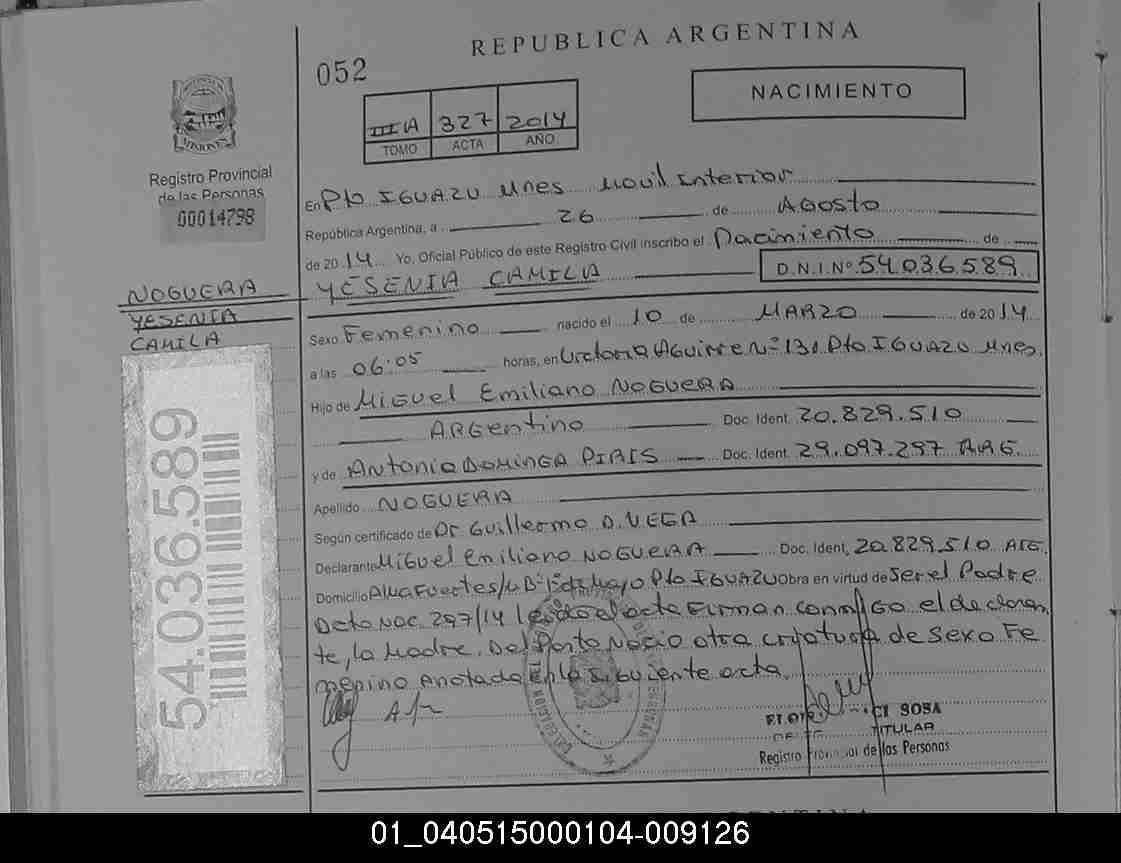 REPUBLICA ARGENTINA
052
NACIMIENTO
IIIA 327 2014
TOMO ACTA AÑO
MISIONES
Registro Provincial
de las Personas
00014798
NOGUERA
YESENIA
CAMILA
54.036.589
En Pto IGUAZU Mnes Movil Interior
República Argentina, a 26 de AGosto
de 2014 Yo, Oficial Público de este Registro Civil inscribo el Nacimiento de
YESENIA CAMILA D.N.I. Nº 54.036.589
Sexo Femenino nacido el 10 de MARZO de 2014
a las 06:05 horas, en Victoria AGuirre Nº 131 Pto IGUAZU Mnes.
Hijo de MiGuel Emiliano NOGUERA
ARGentino Doc. Ident. 20.829.510
y de Antonia DOMINGA PIRIS Doc. Ident. 29.097.297 ARG.
Apellido NOGUERA
Según certificado de Dr Guillermo D. VEGA
Declarante MiGuel Emiliano NOGUERA Doc. Ident. 20.829.510 ARG.
Domicilio Pto IGUAZU Obra en virtud de Ser el Padre
Dcto NAC. 297/14 leida el acta Firman conmiGo el declaran
te, la Madre. Del Parto Nacio otra criatura de sexo Fe
menino Anotada En la siguiente acta.
SOSA
TITULAR
Registro Provincial de las Personas
01_040515000104-009126